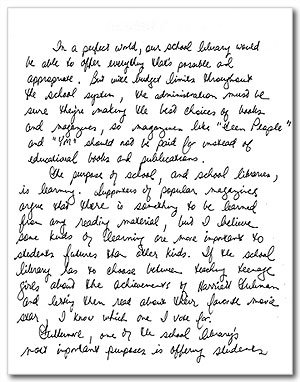 In a perfect world, our school library would
be able to offer everything that's possible and
appropriate. But with budget limits throughout
the school system, the administration must be
sure they're making the best choices of books
and magazines, so magazines like "Teen People"
and "YM" should not be paid for instead of
educational books and publications.
The purpose of school, and school libraries,
is learning. Supporters of popular magazines
argue that there is something to be learned
from any reading material, but I believe
some kinds of learning are more important to
students futures than other kids. If the school
library has to choose between teaching teenage
girls about the achievements of Harriett Tubman
and letting them read about their favorite movie
star, I know which one I vote for.
Furthermore, one of the school library's
most important purposes is offering students